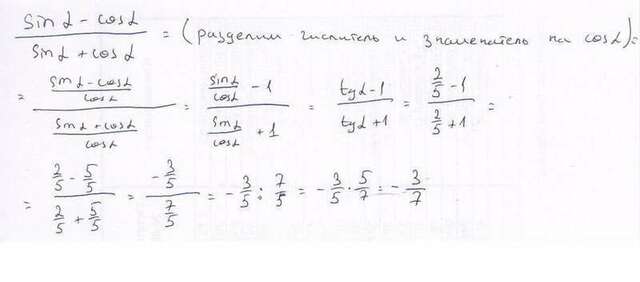 (sin α - cos α)/(sin α + cos α) = (разделим числитель и знаменатель на cos α) =
= ((sin α - cos α)/cos α)/((sin α + cos α)/cos α) = (sin α/cos α - 1)/(sin α/cos α + 1) = (tg α - 1)/(tg α + 1) = (2/5 - 1)/(2/5 + 1) =
= (2/5 - 5/5)/(2/5 + 5/5) = (-3/5)/(7/5) = -3/5 : 7/5 = -3/5 · 5/7 = -3/7